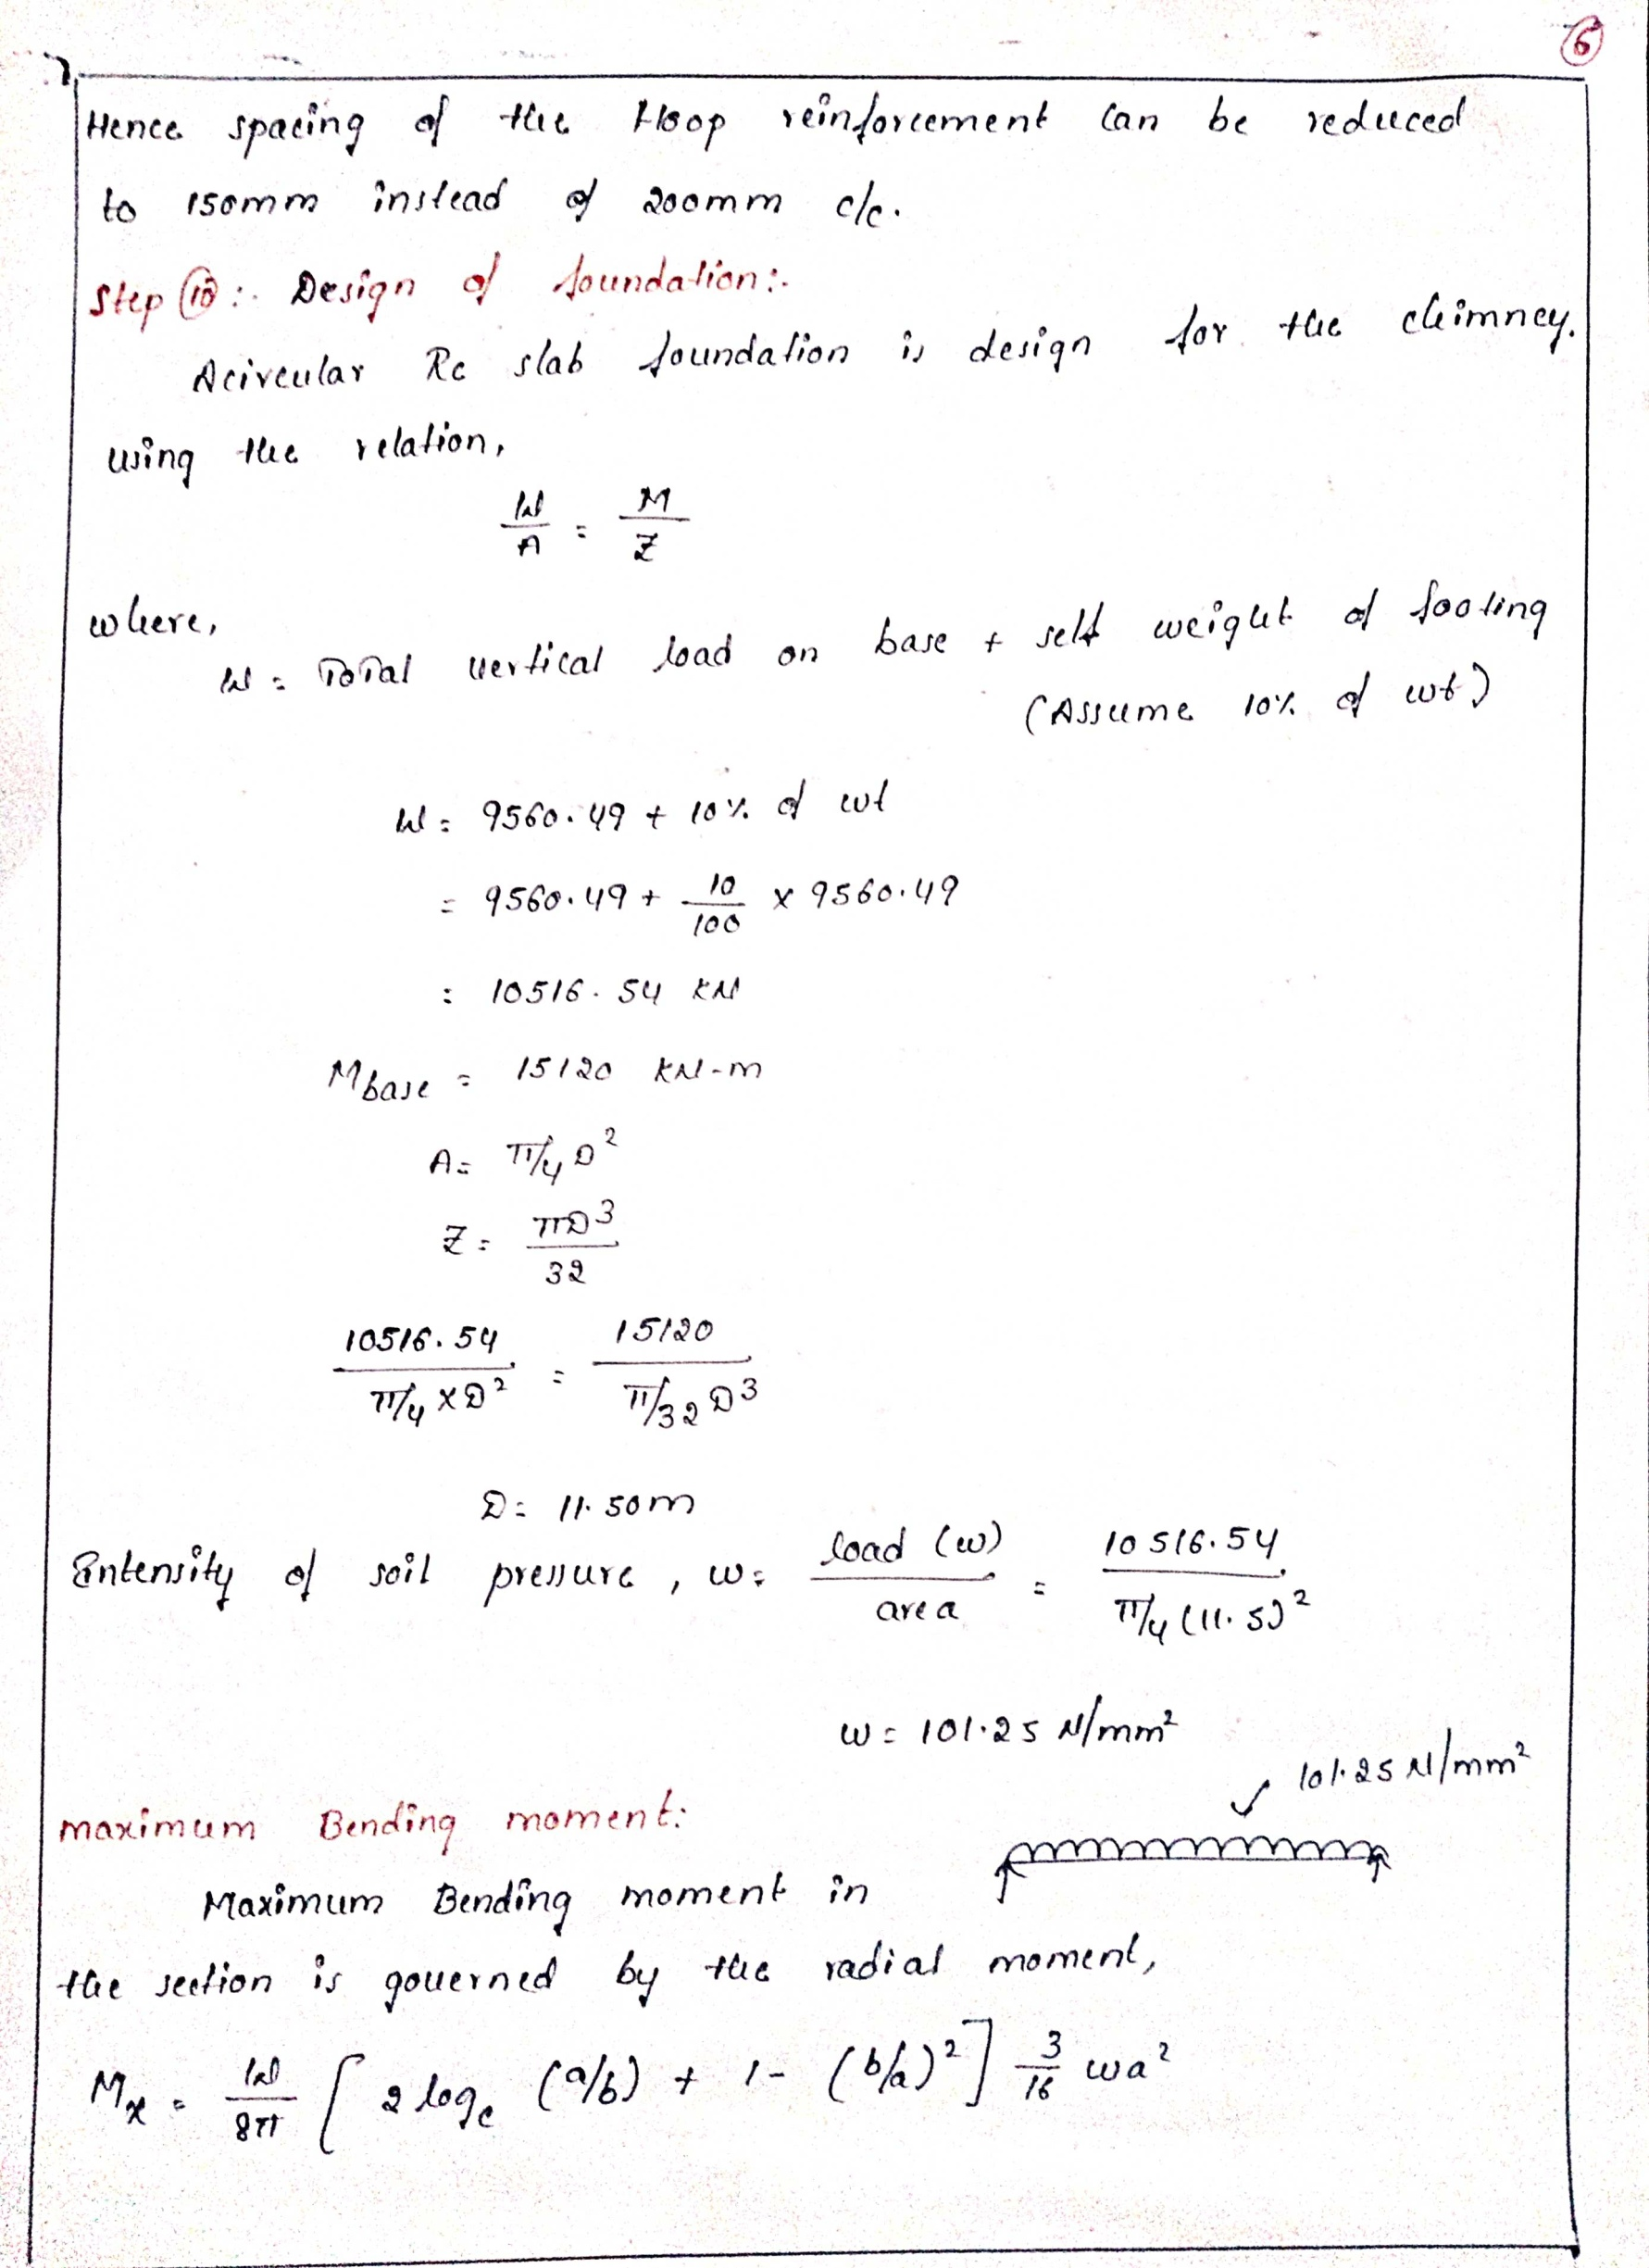 6
Hence spacing of the Hoop reinforcement can be reduced
to 150mm instead of 200mm c/c.
Step 10 :- Design of foundation:-
A circular Rc slab foundation is design for the chimney.
using the relation,
W/A = M/Z
where,
W = Total vertical load on base + self weight of footing
(Assume 10% of wt)
W = 9560.49 + 10% of wt
= 9560.49 + 10/100 × 9560.49
= 10516.54 KN
Mbase = 15120 KN-m
A = π/4 D²
Z = πD³/32
10516.54 / π/4 × D² = 15120 / π/32 D³
D = 11.50m
Intensity of soil pressure, w = load (w) / area = 10516.54 / π/4 (11.5)²
w = 101.25 N/mm²
101.25 N/mm²
maximum Bending moment:
Maximum Bending moment in
the section is governed by the radial moment,
Mx = W/8π [ 2 loge (a/b) + 1 - (b/a)² ] 3/16 wa²